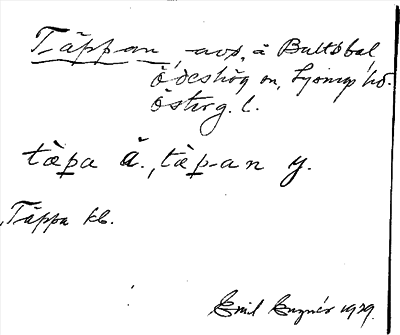 Täppan, avs, å Bultsbol,
Ödeshög sn, Lysings hd.
Österg. l.
tæ̀pa ä., tæ̀p-an y.
Täppa kb.
Emil 1929.